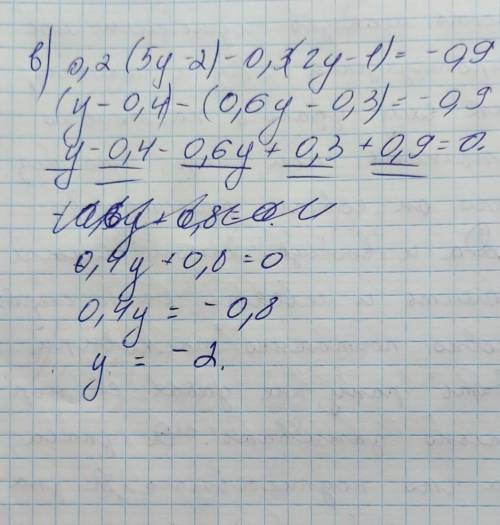 в) 0,2(5y-2)-0,3(2y-1)=-0,9
(y-0,4)-(0,6y-0,3)=-0,9
y-0,4-0,6y+0,3+0,9=0.
0,4y+0,8=0
0,4y=-0,8
y=-2.